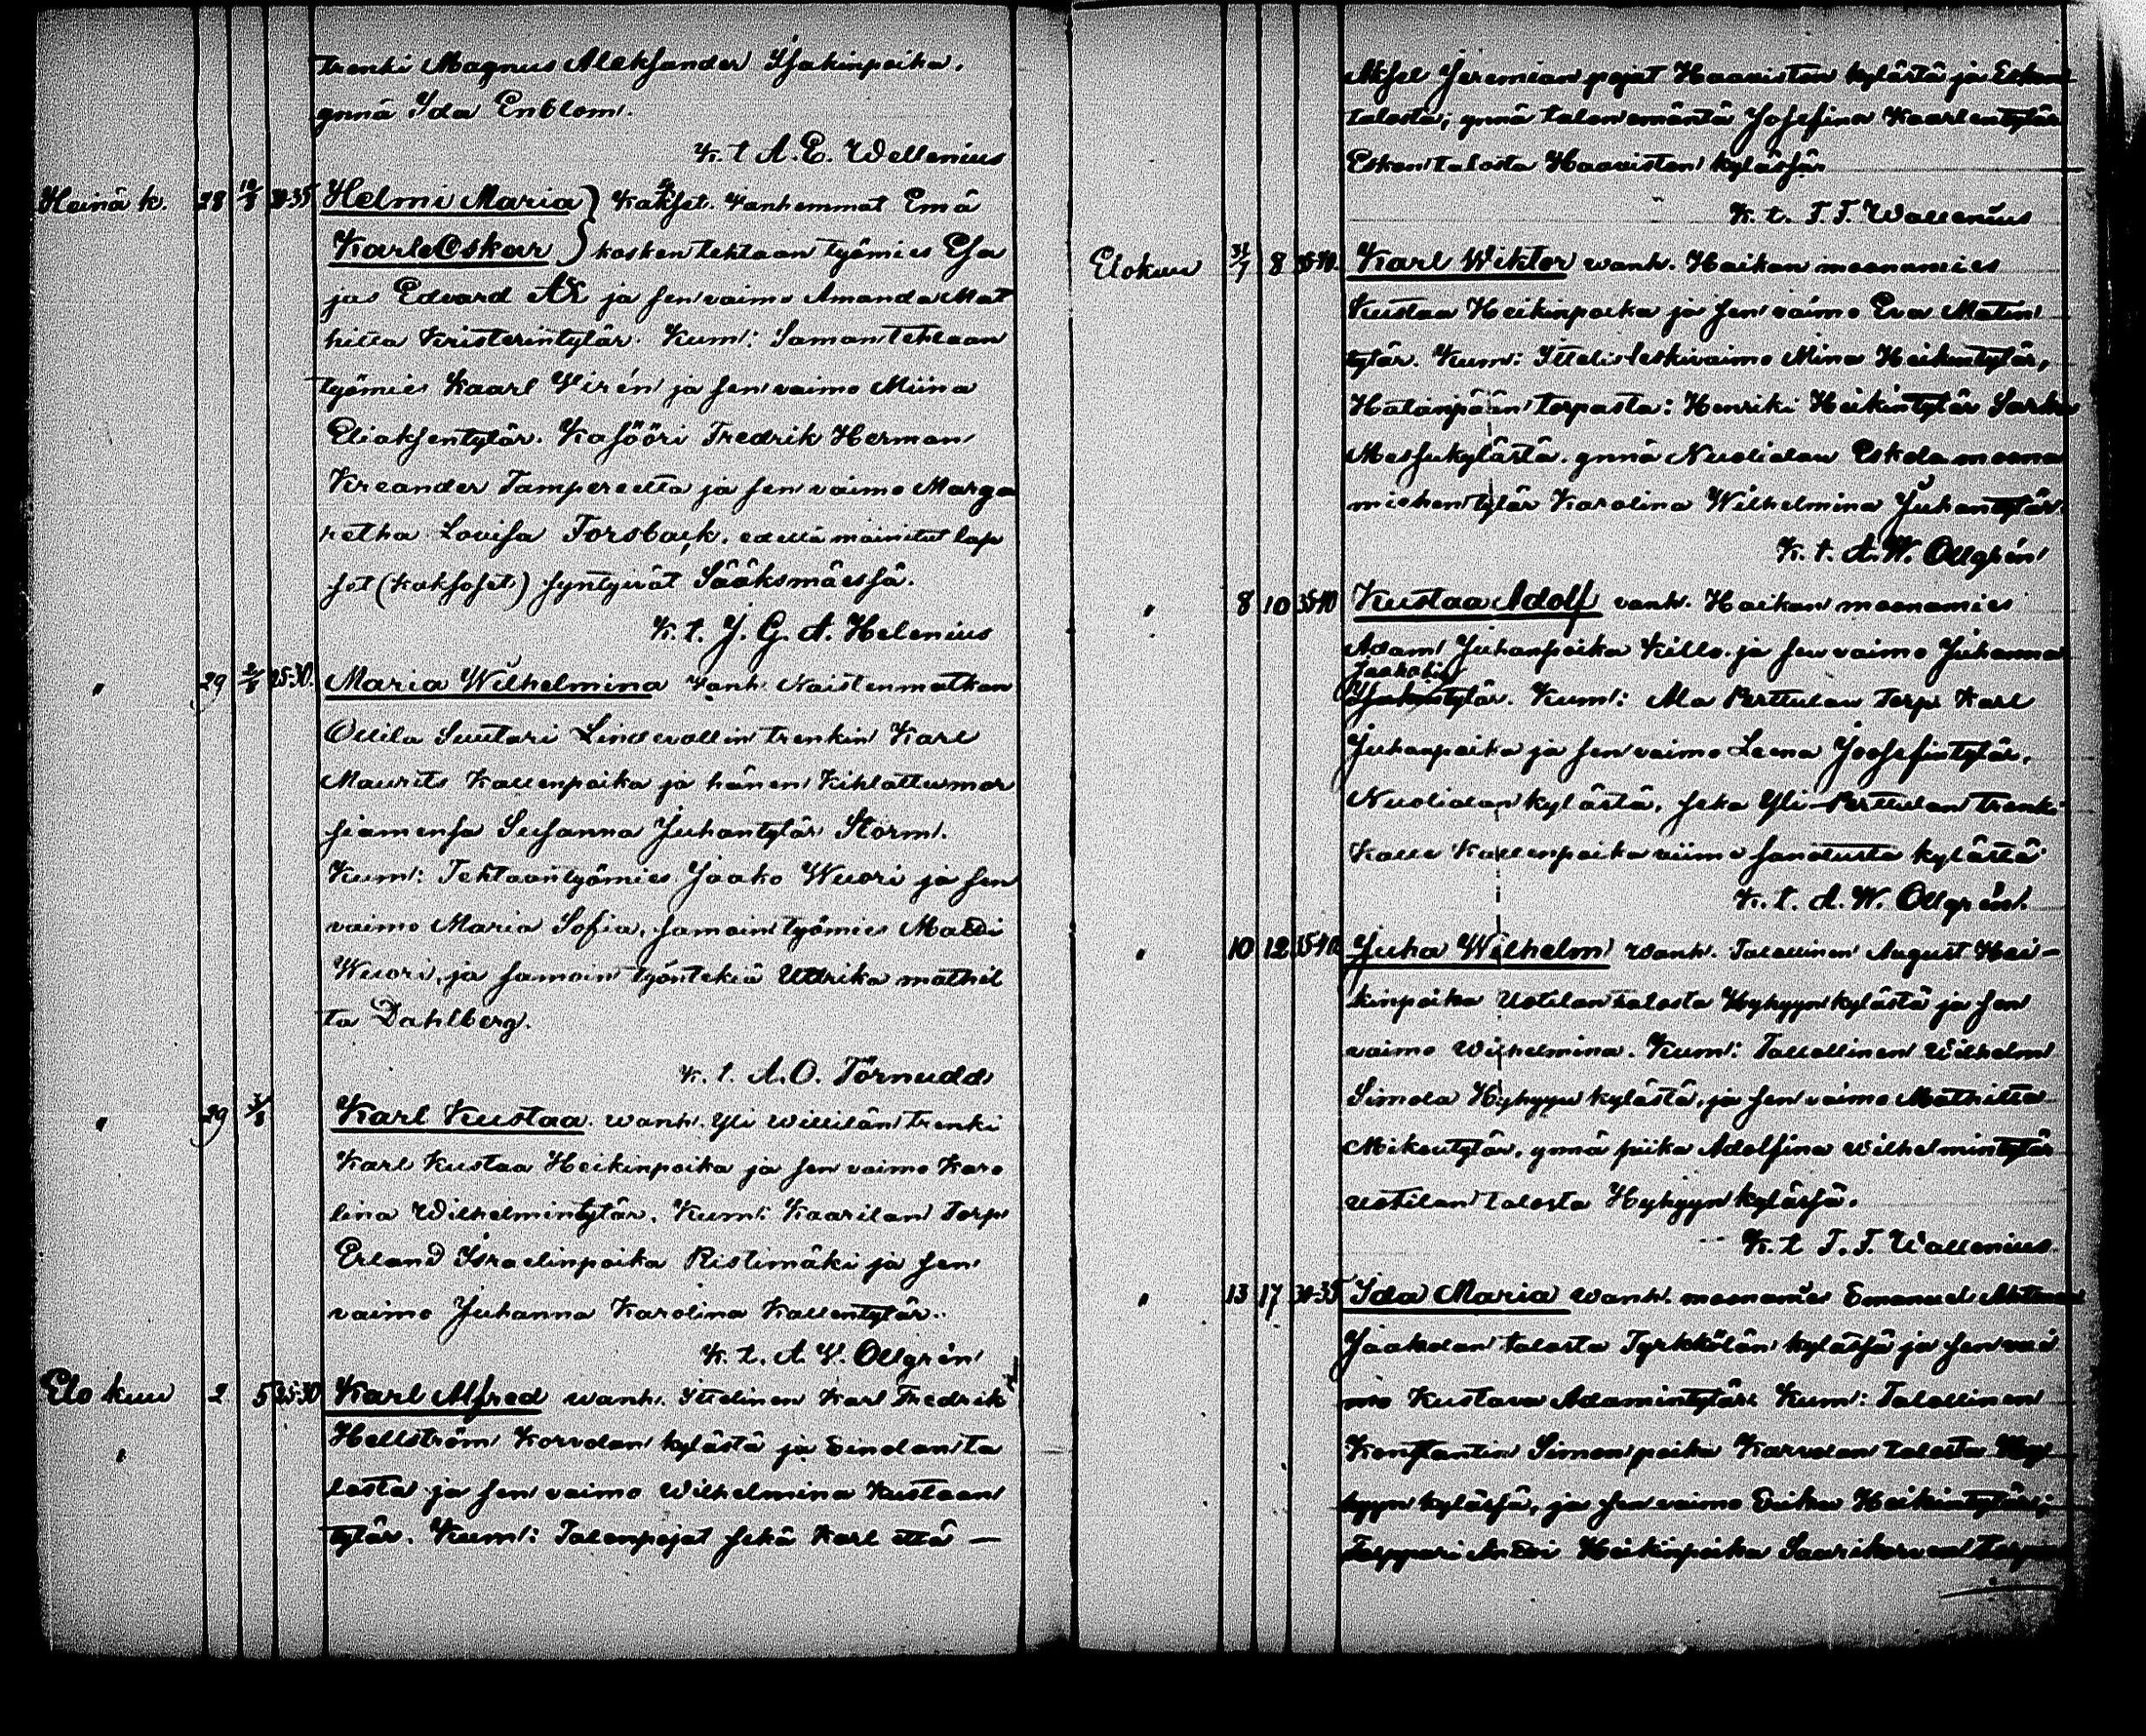 trenki Magnus Aleksander Isakinpoika,
ynnä Ida Enblom.
K. t A. E. Wellenius
Heinä k. 28 10/8 30-35 Helmi Maria) Kakset. Vanhemmat Emä
Karl Oskar) kosken tehtaan työmies Esa
jas Edvard Ek ja sen vaimo Amanda Mat
hilta Kristerintytär. Kum: Saman tehtaan
työmies Kaarl Virén ja sen vaimo Miina
Eliaksentytär. Kasööri Fredrik Herman
Kreander Tampereelta ja sen vaimo Marga
retha Lovisa Forsback, edellä mainitut lap
set (kaksoset) syntyivät Sääksmäessä.
K. t. J. G. A. Helenius
" 29 2/8 25-30. Maria Wilhelmina Vanh. Naistenmatkan
Ollila Suutari Lindevallin trenkin Karl
Maurits Kallenpoika ja hänen Kihlattu mor
siamensa Susanna Juhantytär Storm.
Kum: Tehtaantyömies Jaako Wuori ja sen
vaimo Maria Sofia, samoin työmies Matti
Wuori, ja samoin työntekiä Ulrika mathil
ta Dahlberg.
K. t. A. O. Törnudd
" 29 3/8 Karl Kustaa. wanh. Yli Willilän trenki
Karl Kustaa Heikinpoika ja sen vaimo Karo
lina Wilhelmintytär. Kum: Kaarilan Torp
Erland Israelinpoika Ristimäki ja sen
vaimo Juhanna Karolina Kallentytär.
K. t. A. W. Ollgrén
Elo kuu 2 5 25-30 Karl Alfred wanh. Itellinen Karl Fredrik
" Hellström Korvolan kylästä ja Einolan ta
losta ja sen vaimo Wilhelmina Kustaan
tytär. Kum: Talonpojat sekä Karl että —
Aksel Jeremian pojat Haaviston kylästä ja Eskon
talosta, ynnä talon emäntä Josefina Kaarlentytär
Eskon talosta Haaviston kylässä
K. t. F. F. Wallenius
Elokuu 31/7 8 35-40. Karl Wiktor wanh. Haikan maanamies
Kustaa Heikinpoika ja sen vaimo Eva Matin
tytär. Kum: Itellis leskivaimo Mina Heikintytär,
Hatanpään torpasta: Henriki Heikintytär Sarka
Messukylästä. ynnä Nuolialan Eskola maana
miehen tytär Karolina Wilhelmina Juhantytär.
K. t. A. W. Ollgrén
" 8 10 35-40 Kustaa Adolf vanh. Haikan maanamies
Adam Juhanpoika Killo ja sen vaimo Juhanna
Jaakobin
tytär. Kum: Ala Perttulan Torp. Karl
Juhanpoika ja sen vaimo Leena Joosefintytär,
Nuolialan kylästä, seka Yli-Perttulan trenki
Kalle Kallenpoika viime sanotusta kylästä
K. t. A. W. Ollgrén.
" 10 12 35-40 Juha Wilhelm wanh. Talallinen August Hei-
kinpoika Uotilan talosta Hyhgyn kylästä ja sen
vaimo Wilhelmina. Kum: Tallallinen Wilhelm
Simola Hyhgyn kylästä, ja sen vaimo Mathilta
Mikontytär, ynnä piika Adolfina Wilhelmintytär
Uotilan talosta Hyhgyn kylässä.
K. t F. F. Wallenius
" 13 17 30-35 Ida Maria wanh. maanamies Emanuel
Jaakolan talosta Tyrkkölän kylässä ja sen vai
mo Kustava Adamintytär. Kum: Talallinen
Konstantin Simon poika Karvolan talosta Hyh
gyn kylässä, ja sen vaimo Erika Heikintytär;
Torppari Antti Heikinpoika Saarikorven Torpan